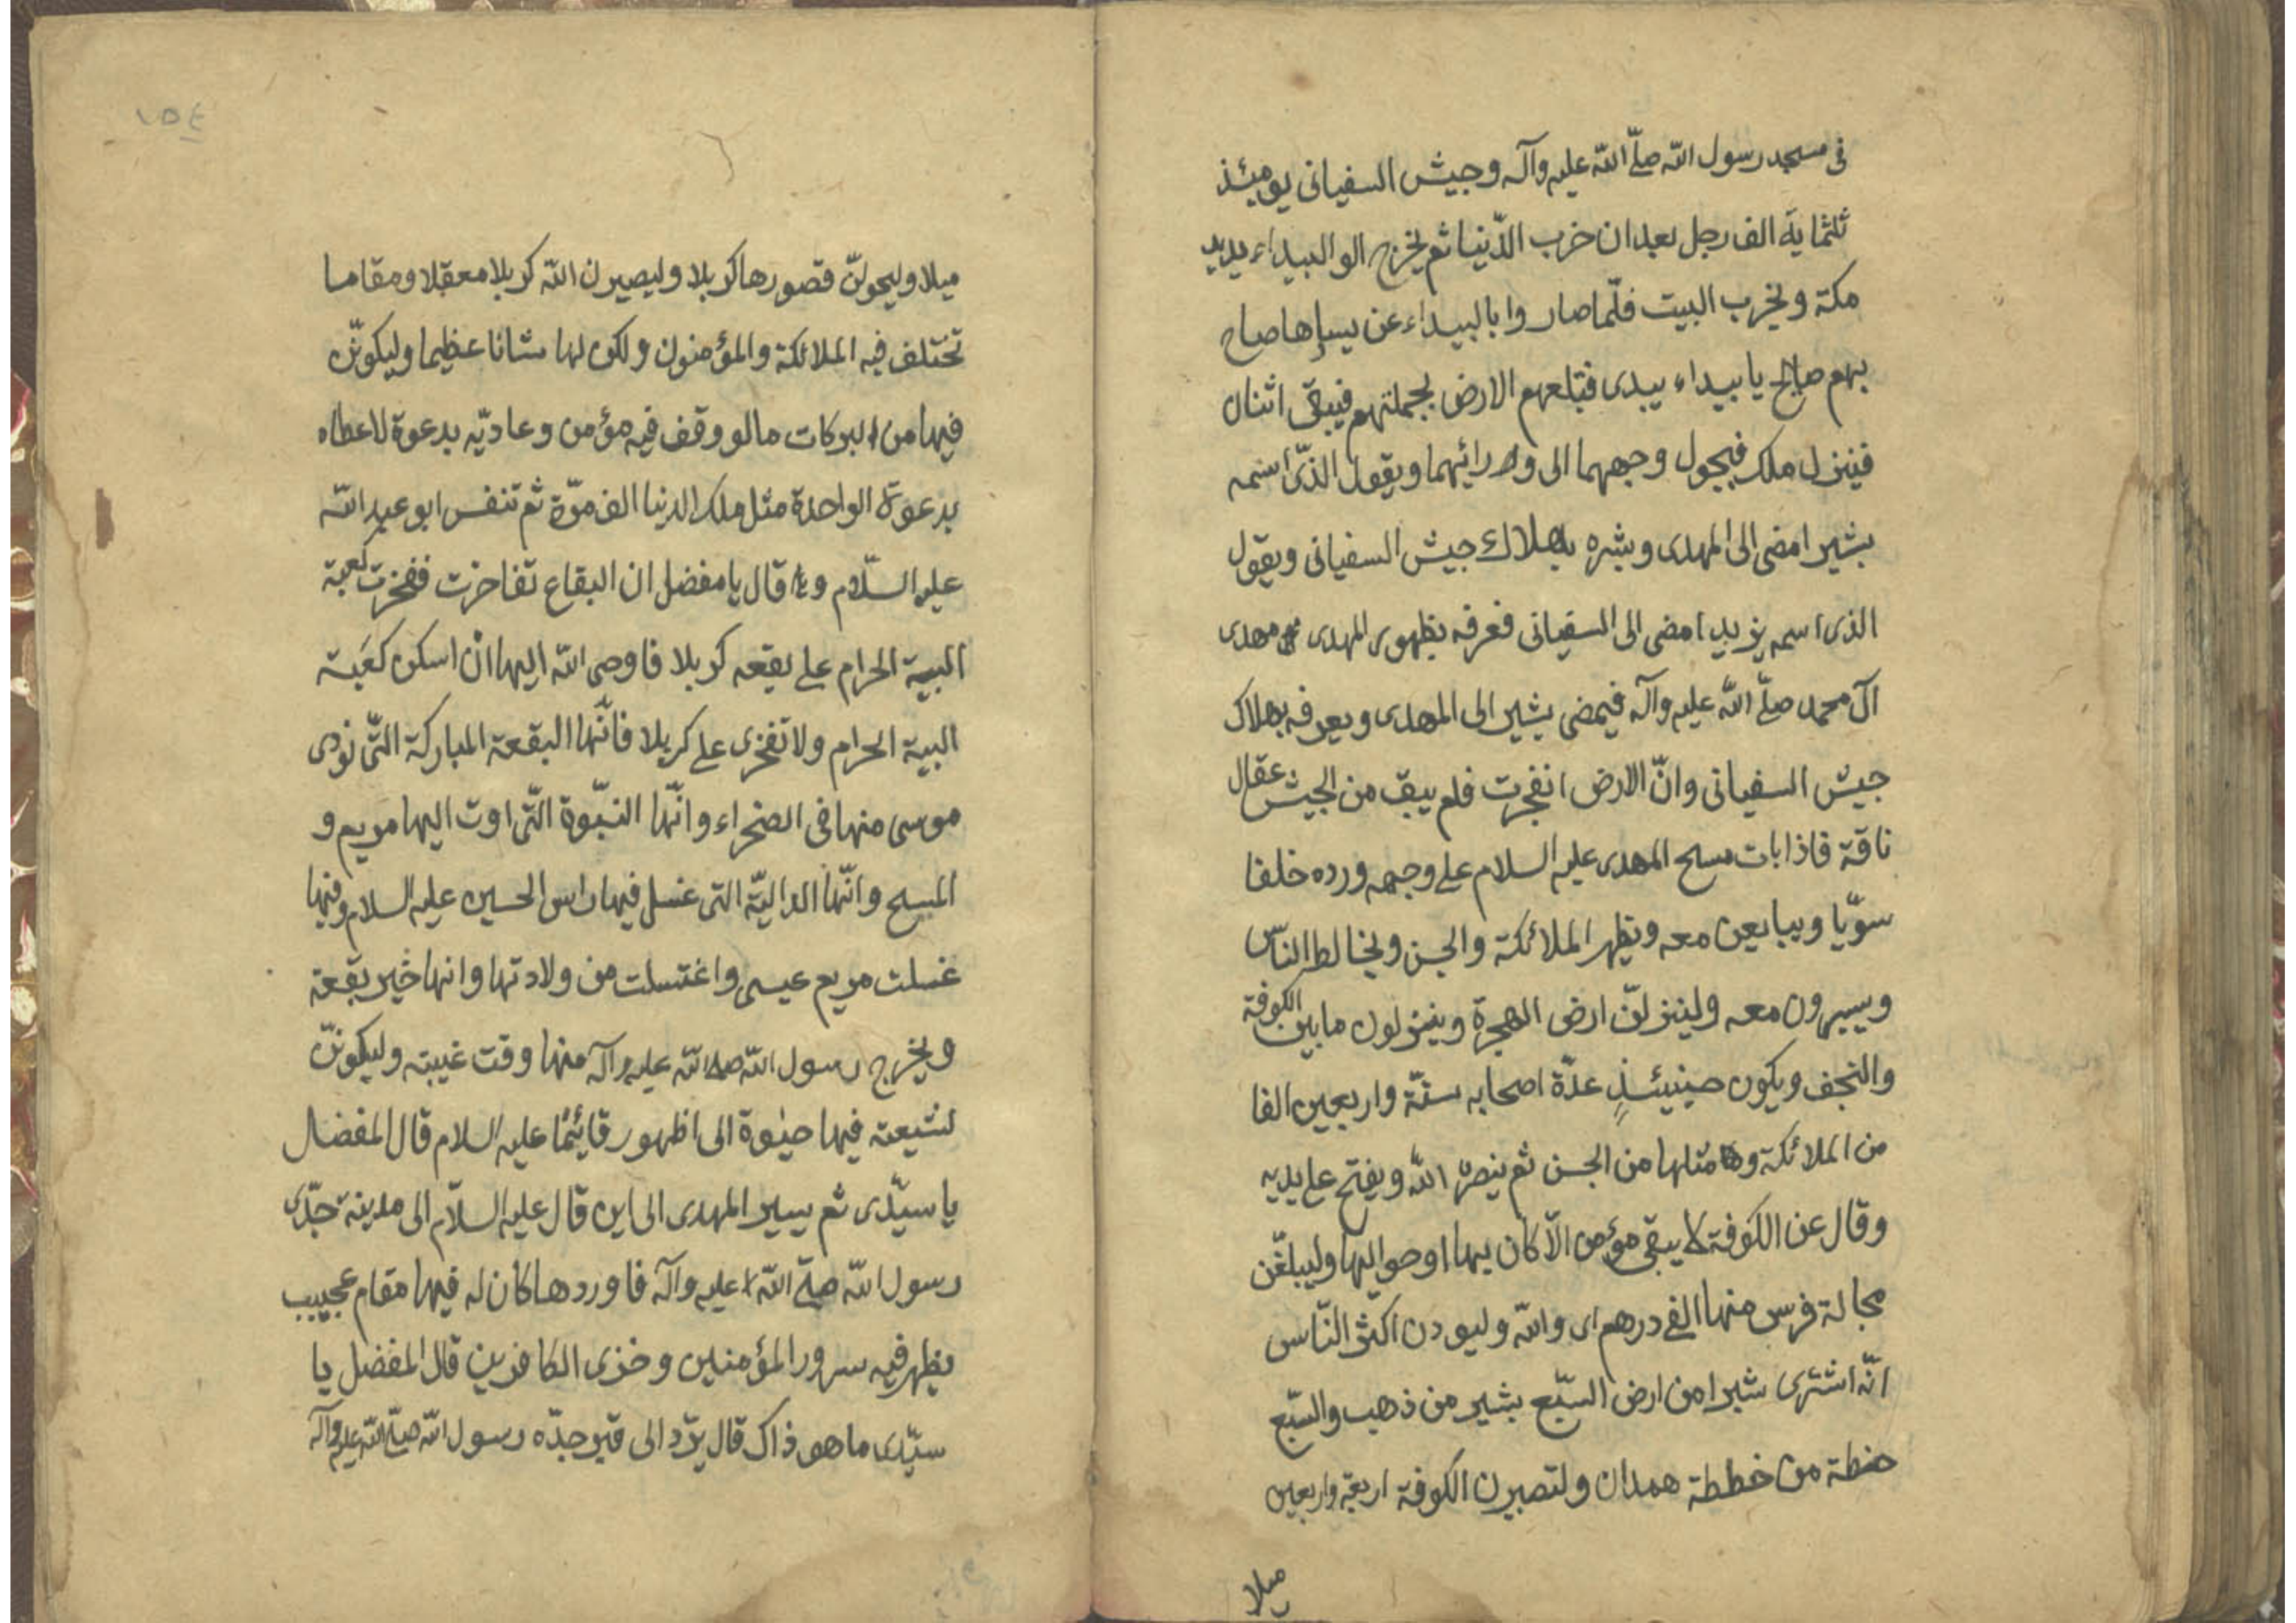 فى مسجد رسول الله صلّى الله عليه وآله وجيش السفيانى يومئذ
ثلثماية الف رجل بعد ان خرب الدّنيا ثم يخرج الو البيداء يريد
مكة ويخرب البيت فلّما صاروا بالبيداء عن يسارها صاح
بهم صايح يا بيداء بيدى فتبلعهم الارض بجملتهم فيبقى اثنان
فينزل ملك فيحول وجههما الى ورائهما ويقول الذّى اسمه
بشير امضى الى المهدى وبشره بهلاك جيش السفيانى ويقول
الذى اسمه يزيد امضى الى السفيانى فعرفه بظهور المهدى مهدى
آل محمد صلّى الله عليه وآله فيمضى بشير الى المهدى ويعرفه بهلاك
جيش السفيانى وانّ الارض انفجرت فلم يبق من الجيش عقال
ناقة فاذا بات مسح المهدى عليه السلام على وجهه ورده خلفا
سوّيا ويبايعن معه وتظهر الملائكة والجن ويخالط النّاس
ويسيرون معه ولينزلنّ ارض الهجرة وينزلون ما بين الكوفة
والنجف ويكون حينيئذٍ عدّة اصحابه ستّة واربعين الفا
من الملائكة و مثلها من الجن ثم ينصره الله ويفتح على يديه
وقال عن الكوفة لا يبقى مؤمن الّا كان بها او حواليها وليبلغّن
مجالة فرس منها الفى درهم اى والله وليودن اكثر النّاس
انّه اشترى شبرا من ارض السّبع بشبر من ذهب والسّبع
خطة من خططة همدان ولتصيرن الكوفة اربعة واربعين
ميلا
١٥٤
ميلا وليحولنّ قصورها كربلا وليصيرن الله كربلا معقلا ومقاما
تختلف فيه الملائكة والمؤمنون ولكون لها شانا عظيما وليكوننّ
فيها من البركات ما لو وقف فيه مؤمن وعا ربّه بدعوة لاعطاه
بدعوة الواحدة مثل ملك الدنيا الف مرّة ثم تنفس ابو عبد الله
عليه السّلام و قال يا مفضل ان البقاع تفاخرت ففخرت كعبة
البية الحرام على بقعه كربلا فاوحى الله اليها انْ اسكن كعَبة
البية الحرام ولا تفخرى على كربلا فانّها البقعة المباركة التّى نودى
موسى منها فى الصخراء وانّها النبّوة التّى اوت اليها مريم و
المسيح وانّها الداليّة التى غسل فيها راس الحسين عليه السلام وفيها
غسلت مريم عيسى واغتسلت من ولادتها وانها خير بقعة
ويخرج رسول الله صلى الله عليه وآله منها وقت غيبته وليكوننّ
لشيعته فيها حيٰوة الى اظهور قائمنا عليه السلام قال المفضال
يا سيّدى ثم يسير المهدى الى اين قال عليه السلّام الى مدينة جدّى
رسول الله صلّى الله عليه وآله فاوردها كان له فيها مقام عجيب
يظهر فيه سرور المؤمنين وخزى الكافرين قال المفضل يا
سيّدى ما هو ذاك قال يرّد الى قبر جدّه رسول الله صلّى الله عليه وآله